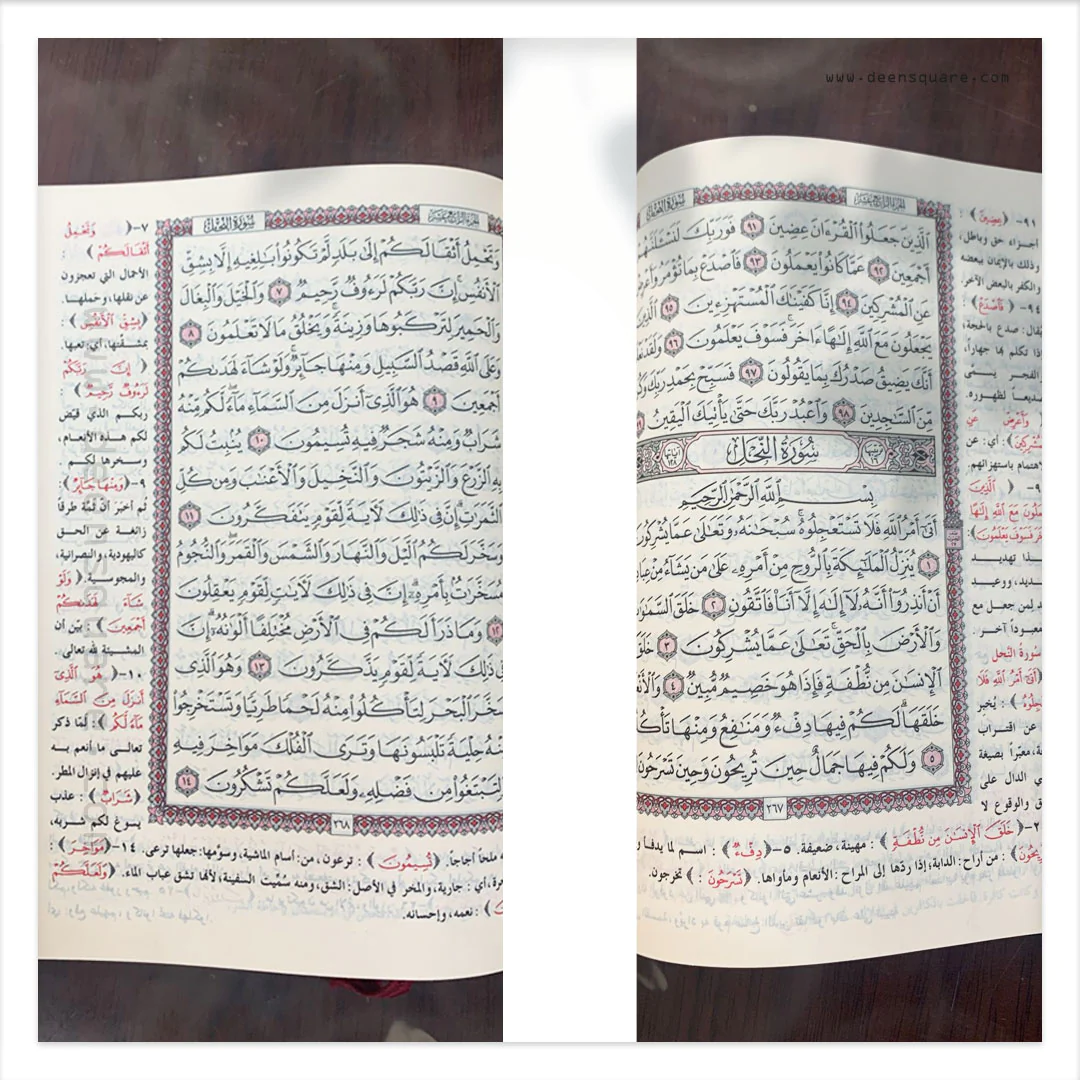 www.deensquare.com
سُورَةُ النَّحْلِ
الجزء الرابع عشر
الَّذِينَ جَعَلُوا الْقُرْءَانَ عِضِينَ ٩١ فَوَرَبِّكَ لَنَسْـَٔلَنَّهُمْ
أَجْمَعِينَ ٩٢ عَمَّا كَانُوا يَعْمَلُونَ ٩٣ فَاصْدَعْ بِمَا تُؤْمَرُ وَأَعْرِضْ
عَنِ الْمُشْرِكِينَ ٩٤ إِنَّا كَفَيْنَاكَ الْمُسْتَهْزِءِينَ ٩٥ الَّذِينَ
يَجْعَلُونَ مَعَ اللَّهِ إِلَٰهًا ءَاخَرَ فَسَوْفَ يَعْلَمُونَ ٩٦ وَلَقَدْ نَعْلَمُ
أَنَّكَ يَضِيقُ صَدْرُكَ بِمَا يَقُولُونَ ٩٧ فَسَبِّحْ بِحَمْدِ رَبِّكَ
مِّنَ السَّٰجِدِينَ ٩٨ وَاعْبُدْ رَبَّكَ حَتَّىٰ يَأْتِيَكَ الْيَقِينُ
سُورَةُ النَّحْلِ
ترتيبها ١٦
آياتها ١٢٨
بِسْمِ اللَّهِ الرَّحْمَٰنِ الرَّحِيمِ
أَتَىٰ أَمْرُ اللَّهِ فَلَا تَسْتَعْجِلُوهُ سُبْحَٰنَهُ وَتَعَٰلَىٰ عَمَّا يُشْرِكُونَ
١ يُنَزِّلُ الْمَلَٰٓئِكَةَ بِالرُّوحِ مِنْ أَمْرِهِ عَلَىٰ مَن يَشَآءُ مِنْ عِبَادِهِ
أَنْ أَنذِرُوٓا أَنَّهُ لَآ إِلَٰهَ إِلَّآ أَنَا۠ فَاتَّقُونِ ٢ خَلَقَ السَّمَٰوَٰتِ
وَالْأَرْضَ بِالْحَقِّ تَعَٰلَىٰ عَمَّا يُشْرِكُونَ ٣ خَلَقَ
الْإِنسَٰنَ مِن نُّطْفَةٍ فَإِذَا هُوَ خَصِيمٌ مُّبِينٌ ٤ وَالْأَنْعَٰمَ
خَلَقَهَا لَكُمْ فِيهَا دِفْءٌ وَمَنَٰفِعُ وَمِنْهَا تَأْكُلُونَ
٥ وَلَكُمْ فِيهَا جَمَالٌ حِينَ تُرِيحُونَ وَحِينَ تَسْرَحُونَ
٢٦٧
٩١- ﴿عِضِينَ﴾ :
أجزاء: حق وباطل،
وذلك بالإيمان ببعضه
والكفر بالبعض الآخر.
٩٤- ﴿فَاصْدَعْ﴾ :
يقال: صدع بالحجة،
إذا تكلم بها جهاراً،
والفجر يسمى
صديعاً لظهوره.
﴿وَأَعْرِضْ عَنِ
الْمُشْرِكِينَ﴾ : أي: عن
الاهتمام باستهزائهم.
﴿الَّذِينَ
يَجْعَلُونَ مَعَ اللَّهِ إِلَٰهًا
ءَاخَرَ فَسَوْفَ يَعْلَمُونَ﴾ :
هذا تهديد
شديد، ووعيد
لمن جعل مع
معبوداً آخر.
سورة النحل
﴿أَتَىٰ أَمْرُ اللَّهِ فَلَا
تَسْتَعْجِلُوهُ﴾ : يُخبر
عن اقتراب
معبّراً بصيغة
الدال على
والوقوع لا
﴿خَلَقَ الْإِنسَٰنَ مِن نُّطْفَةٍ﴾ : مهينة، ضعيفة. ٥- ﴿دِفْءٌ﴾ : اسم لما يدفأ
﴿تُرِيحُونَ﴾ : من أراح: الدابة، إذا ردّها إلى المراح: الأنعام ومأواها. ﴿تَسْرَحُونَ﴾ : تخرجون.
سُورَةُ النَّحْلِ
الجزء الرابع عشر
وَتَحْمِلُ أَثْقَالَكُمْ إِلَىٰ بَلَدٍ لَّمْ تَكُونُوا بَٰلِغِيهِ إِلَّا بِشِقِّ
الْأَنفُسِ إِنَّ رَبَّكُمْ لَرَءُوفٌ رَّحِيمٌ ٧ وَالْخَيْلَ وَالْبِغَالَ
وَالْحَمِيرَ لِتَرْكَبُوهَا وَزِينَةً وَيَخْلُقُ مَا لَا تَعْلَمُونَ ٨
وَعَلَى اللَّهِ قَصْدُ السَّبِيلِ وَمِنْهَا جَآئِرٌ وَلَوْ شَآءَ لَهَدَىٰكُمْ
أَجْمَعِينَ ٩ هُوَ الَّذِىٓ أَنزَلَ مِنَ السَّمَآءِ مَآءً لَّكُم مِّنْهُ
شَرَابٌ وَمِنْهُ شَجَرٌ فِيهِ تُسِيمُونَ ١٠ يُنۢبِتُ لَكُم
بِهِ الزَّرْعَ وَالزَّيْتُونَ وَالنَّخِيلَ وَالْأَعْنَٰبَ وَمِن كُلِّ
الثَّمَرَٰتِ إِنَّ فِى ذَٰلِكَ لَءَايَةً لِّقَوْمٍ يَتَفَكَّرُونَ ١١
وَسَخَّرَ لَكُمُ الَّيْلَ وَالنَّهَارَ وَالشَّمْسَ وَالْقَمَرَ وَالنُّجُومُ
مُسَخَّرَٰتٌۢ بِأَمْرِهِ إِنَّ فِى ذَٰلِكَ لَءَايَٰتٍ لِّقَوْمٍ يَعْقِلُونَ
١٢ وَمَا ذَرَأَ لَكُمْ فِى الْأَرْضِ مُخْتَلِفًا أَلْوَٰنُهُ إِنَّ
فِى ذَٰلِكَ لَءَايَةً لِّقَوْمٍ يَذَّكَّرُونَ ١٣ وَهُوَ الَّذِى
سَخَّرَ الْبَحْرَ لِتَأْكُلُوا مِنْهُ لَحْمًا طَرِيًّا وَتَسْتَخْرِجُوا
مِنْهُ حِلْيَةً تَلْبَسُونَهَا وَتَرَى الْفُلْكَ مَوَاخِرَ فِيهِ
وَلِتَبْتَغُوا مِن فَضْلِهِ وَلَعَلَّكُمْ تَشْكُرُونَ ١٤
٢٦٨
٧- ﴿وَتَحْمِلُ
أَثْقَالَكُمْ﴾ :
الأحمال التي تعجزون
عن نقلها، وحملها.
﴿بِشِقِّ الْأَنفُسِ﴾ :
بمشقّتها، أي: تعبها.
﴿إِنَّ رَبَّكُمْ
لَرَءُوفٌ رَّحِيمٌ﴾
ربكم الذي قيّض
لكم هذه الأنعام،
وسخرها لكم.
٩- ﴿وَمِنْهَا جَآئِرٌ﴾ :
ثُم أخبَرَ أنّ ثَمَّةَ طرقاً
زائغة عن الحق
كاليهودية، والنصرانية،
والمجوسية. ﴿وَلَوْ
شَآءَ لَهَدَىٰكُمْ
أَجْمَعِينَ﴾ : بيّن أن
المشيئة لله تعالى.
١٠- ﴿هُوَ الَّذِىٓ
أَنزَلَ مِنَ السَّمَآءِ
مَآءً لَّكُم﴾ : لمّا ذكر
تعالى ما أنعم به
عليهم في إنزال المطر.
﴿شَرَابٌ﴾ : عذب
يسوغ لكم شربه،
ملحاً أجاجاً. ﴿تُسِيمُونَ﴾ : ترعون، من: أسام الماشية، وسوّمها: جعلها ترعى. ١٤- ﴿مَوَاخِرَ﴾ :
أي: جارية، والمخر في الأصل: الشق، ومنه سُمّيت السفينة، لأنها تشق عباب الماء. ﴿وَلَعَلَّكُمْ
: نعمه، وإحسانه.